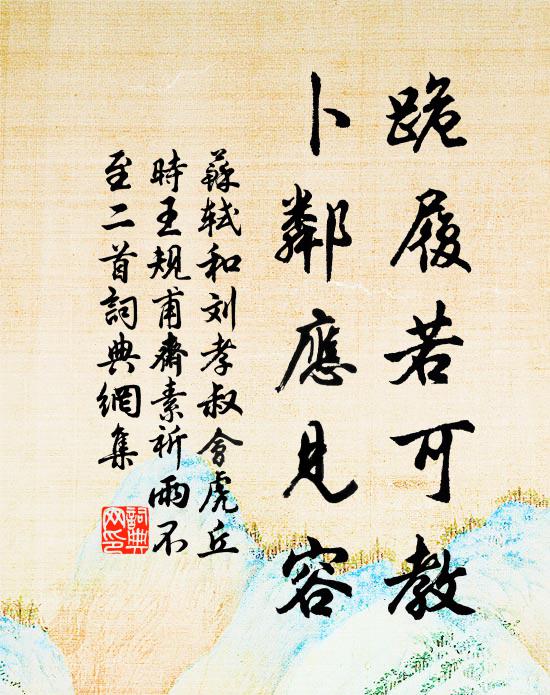 跪履若可教
卜鄰應見容
蘇轼和刘孝叔會虎丘
時王規甫齋素祈雨不
至二首詞典網集
詞典网印